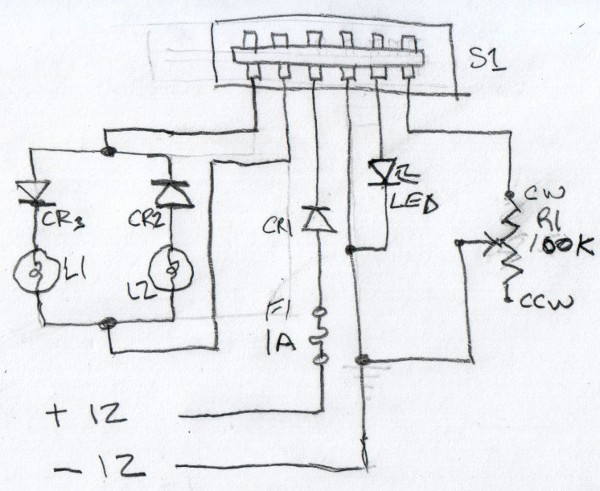 S1
CW
LED
R1
CR3
CR2
CR1
100K
L1
L2
F1
1A
CCW
+ 12
- 12